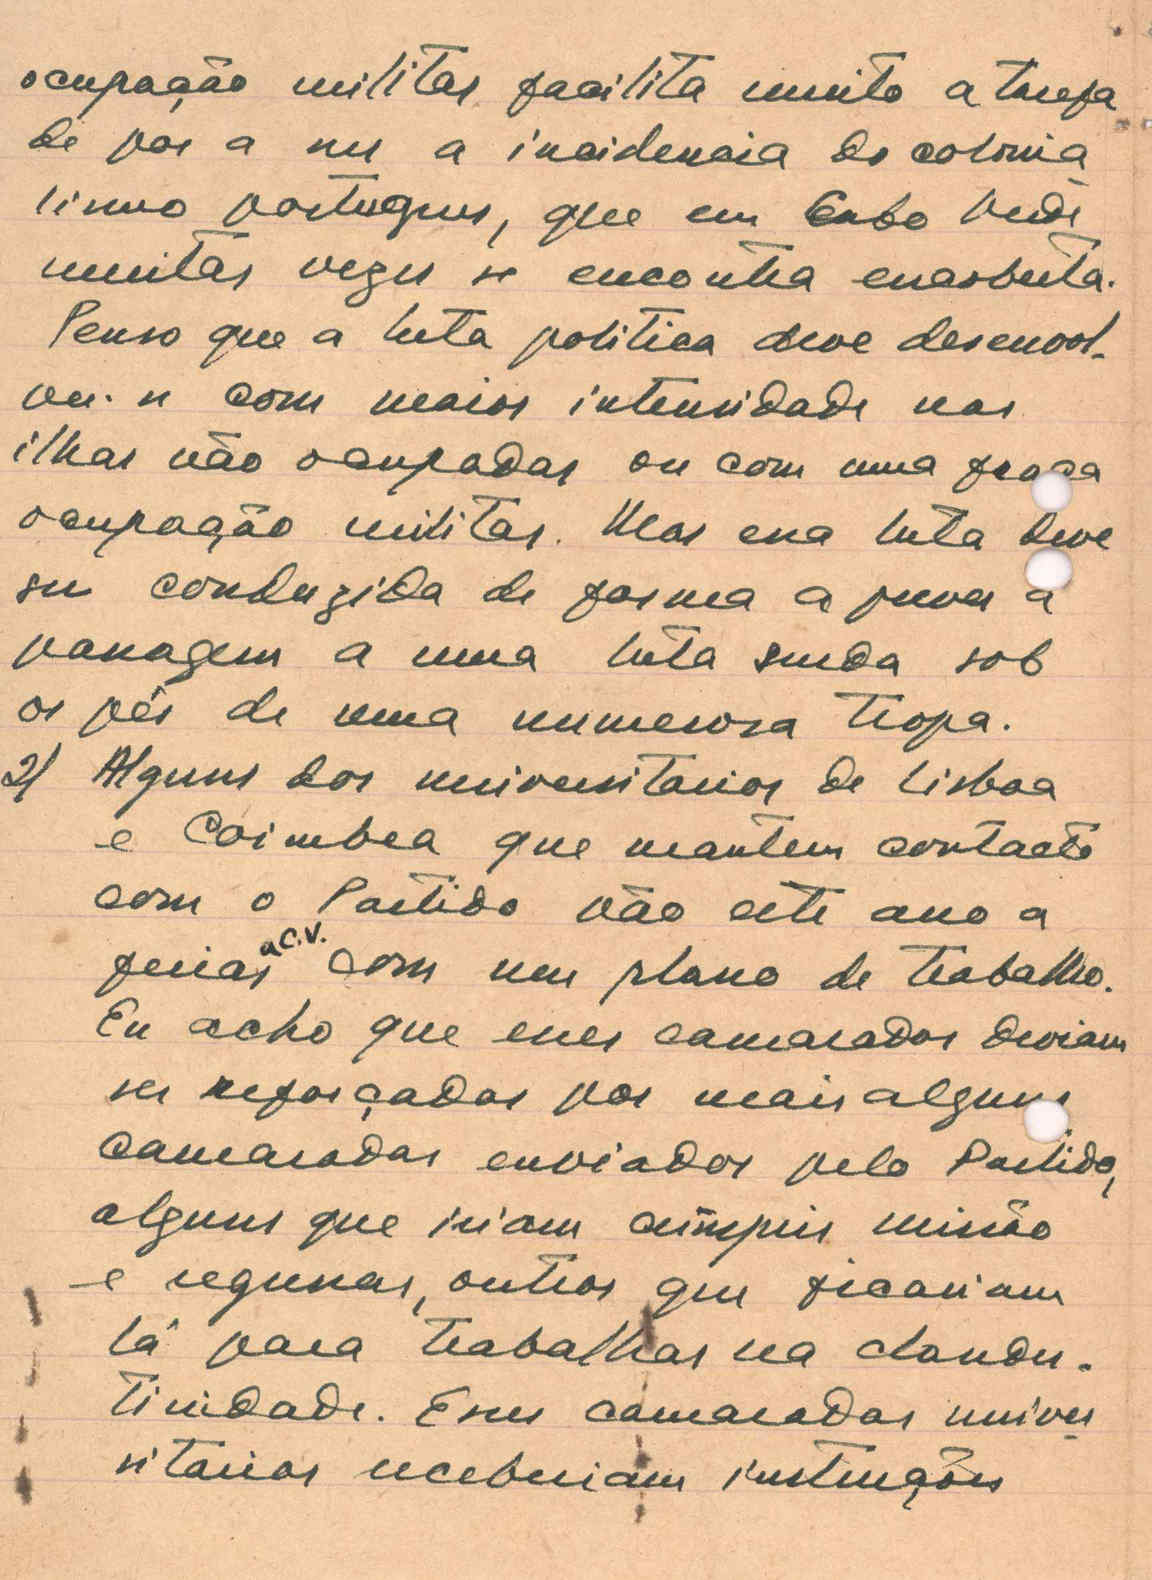 ocupação militar facilita muito a tarefa
de por a nu a incidencia do colonia
lismo portugues, que em Cabo Verde
muitas vezes se encontra encoberta.
Penso que a luta politica deve desenvol-
ver-se com maior intensidade nas
ilhas não ocupadas ou com uma fraca
ocupação militar. Mas essa luta deve
ser conduzida de forma a prever a
passagem a uma luta surda sob
os pés de uma numerosa tropa.
2/ Alguns dos universitarios de Lisboa
e Coimbra que mantem contacto
com o Partido vão este ano a
ferias a C.V. com um plano de trabalho.
Eu acho que esses camaradas deviam
ser reforçados por mais alguns
camaradas enviados pelo Partido,
alguns que iriam cumprir missão
e regressar, outros que ficariam
lá para trabalhar na clandes-
tinidade. Esses camaradas univer
sitarios receberiam instruções